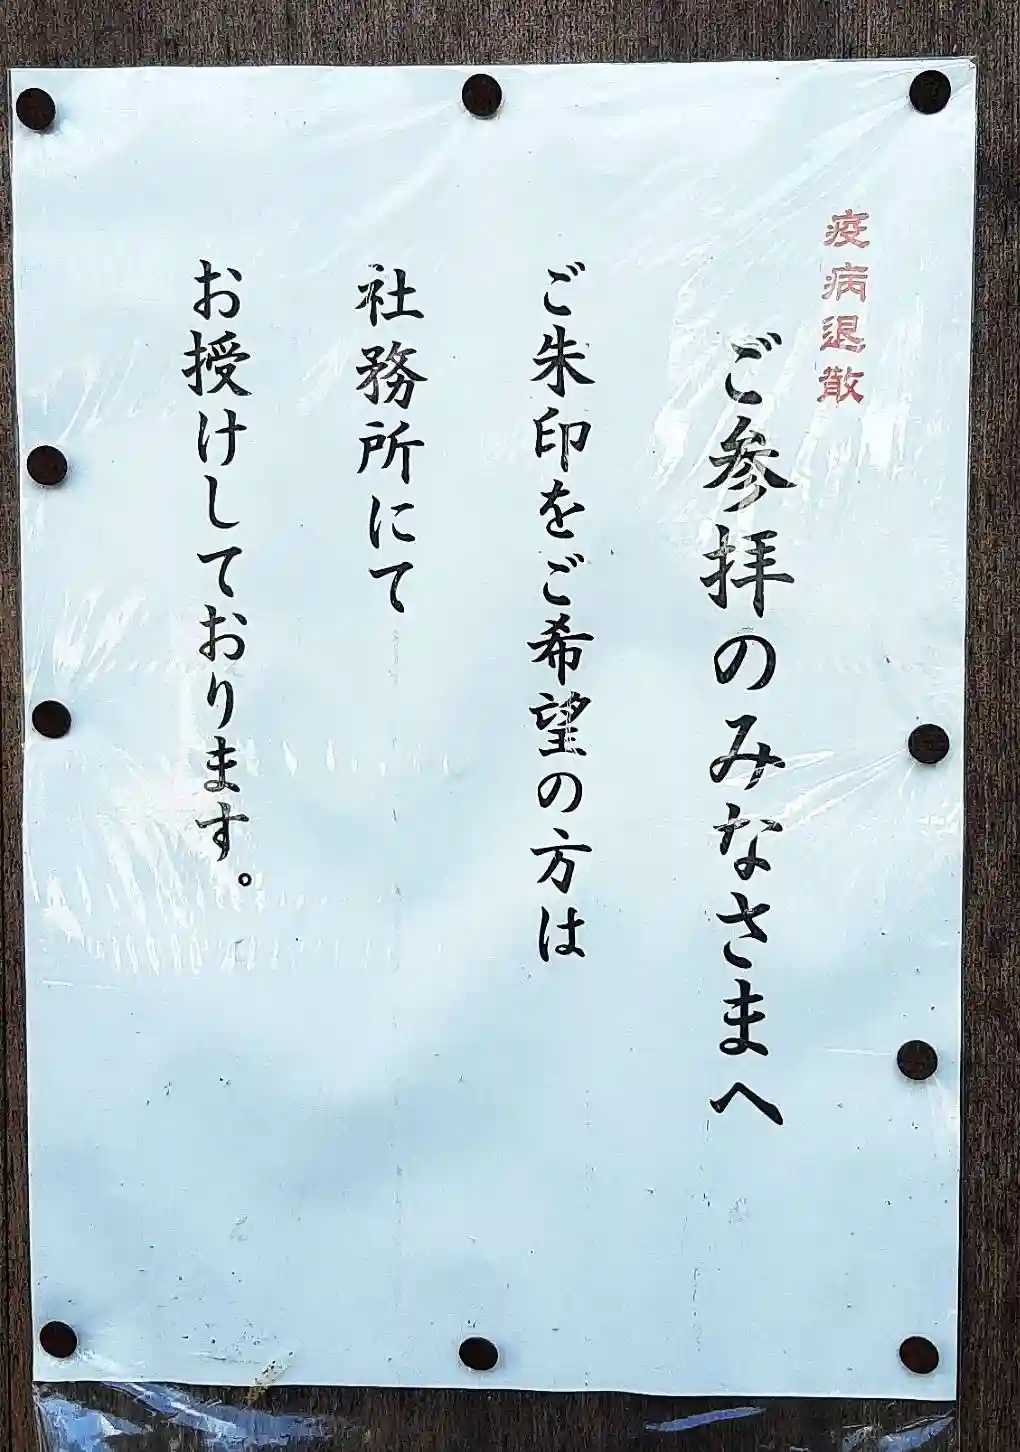 疫病退散
ご参拝のみなさまへ
ご朱印をご希望の方は
社務所にて
お授けしております。